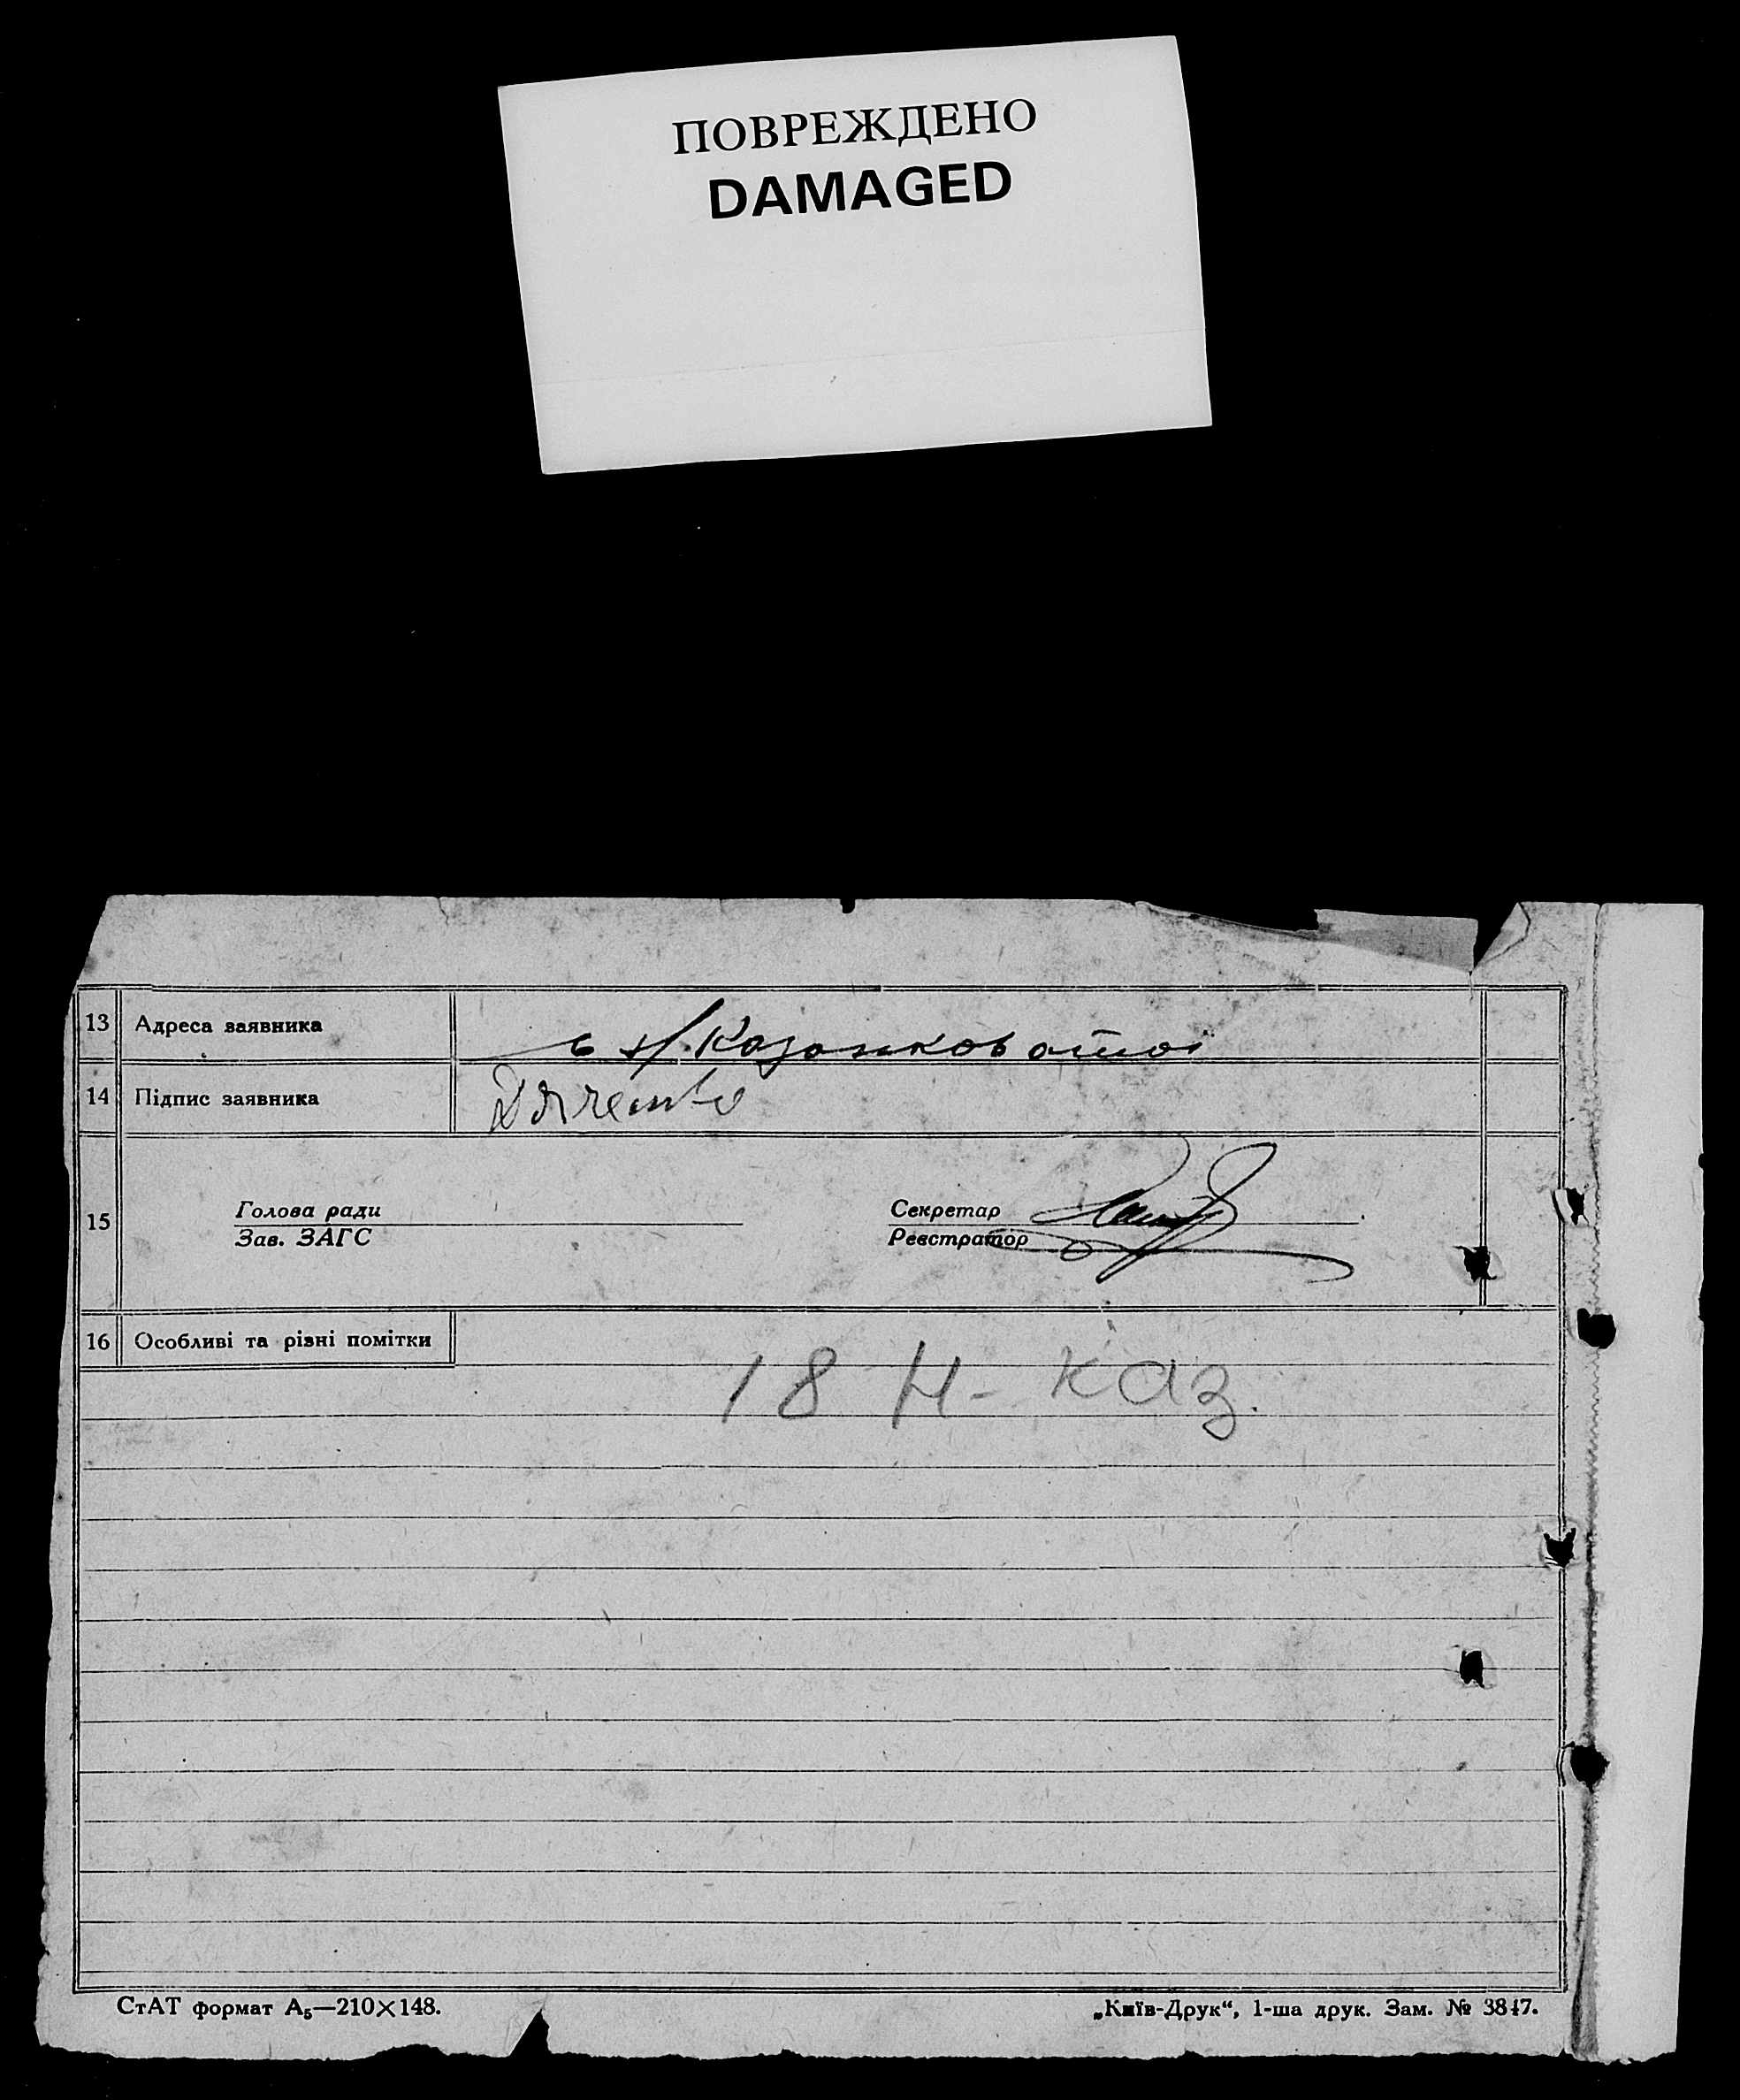 ПОВРЕЖДЕНО
DAMAGED
13 Адреса заявника с Н. Казанковатої
14 Підпис заявника
15 Голова ради Секретар
Зав. ЗАГС Реєстратор
16 Особливі та різні помітки
18 Н- Каз.
СтАТ формат А₅—210×148. „Київ-Друк“, 1-ша друк. Зам. № 3847.